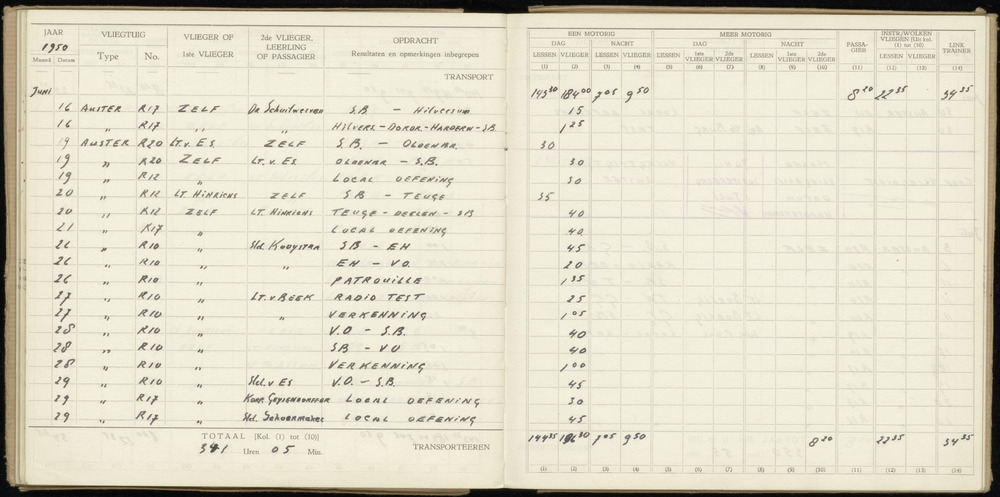 JAAR
1950
VLIEGTUIG
VLIEGER OF
1ste VLIEGER
2de VLIEGER,
LEERLING
OF PASSAGIER
OPDRACHT
Resultaten en opmerkingen inbegrepen
Maand Datum Type No.
TRANSPORT
JUNI
16 AUSTER R17 ZELF S.B. - Hilversum
16 " R17 " " HILVERS-DOKOR-HARDERW-S.B.
19 AUSTER R20 LT. v. ES ZELF S.B. - OLDENBR.
19 " R20 ZELF LT. v. ES OLDENBR - S.B.
19 " R12 " LOCAL OEFENING
20 " R12 LT. HINRICHS ZELF SB - TEUGE
20 " R12 ZELF LT. HINRICHS TEUGE - DEELEN - SB
21 " R17 " LOCAL OEFENING
26 " R10 " Sld. KOOYSTRA SB - EH
26 " R10 " " EH - V.O.
26 " R10 " PATROUILLE
27 " R10 " LT. v BEEK RADIO TEST
27 " R10 " " VERKENNING
28 " R10 " V.O - S.B.
28 " R10 " SB - VO
28 " R10 " VERKENNING
29 " R10 " Sld. v ES V.O. - S.B.
29 " R17 " LOCAL OEFENING
29 " R17 " Sld. Schoenmaker LOCAL OEFENING
TOTAAL [Kol. (1) tot (10)]
341 Uren 05 Min.
TRANSPORTEEREN
EEN MOTORIG
MEER MOTORIG
PASSA-
GIER
INSTR./WOLKEN
VLIEGEN [IIn kol.
(1) tot (10)]
LINK
TRAINER
DAG NACHT DAG NACHT
LESSEN VLIEGER LESSEN VLIEGER LESSEN 1ste VLIEGER 2de VLIEGER LESSEN 1ste VLIEGER 2de VLIEGER LESSEN VLIEGER
(1) (2) (3) (4) (5) (6) (7) (8) (9) (10) (11) (12) (13) (14)
143 30 184 00 7 05 9 50 8 20 22 35 34 35
15
1 25
30
30
30
35
40
40
45
20
1 35
25
1 05
40
40
1 00
45
30
45
144 35 196 30 7 05 9 50 8 20 22 35 34 35
(1) (2) (3) (4) (5) (6) (7) (8) (9) (10) (11) (12) (13) (14)